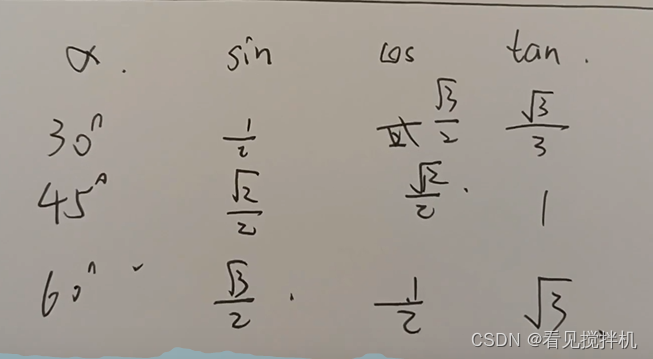 α. sin cos tan.
30° 1/2 √3/2 √3/3
45° √2/2 √2/2. 1
60° √3/2. 1/2 √3
CSDN @看见搅拌机